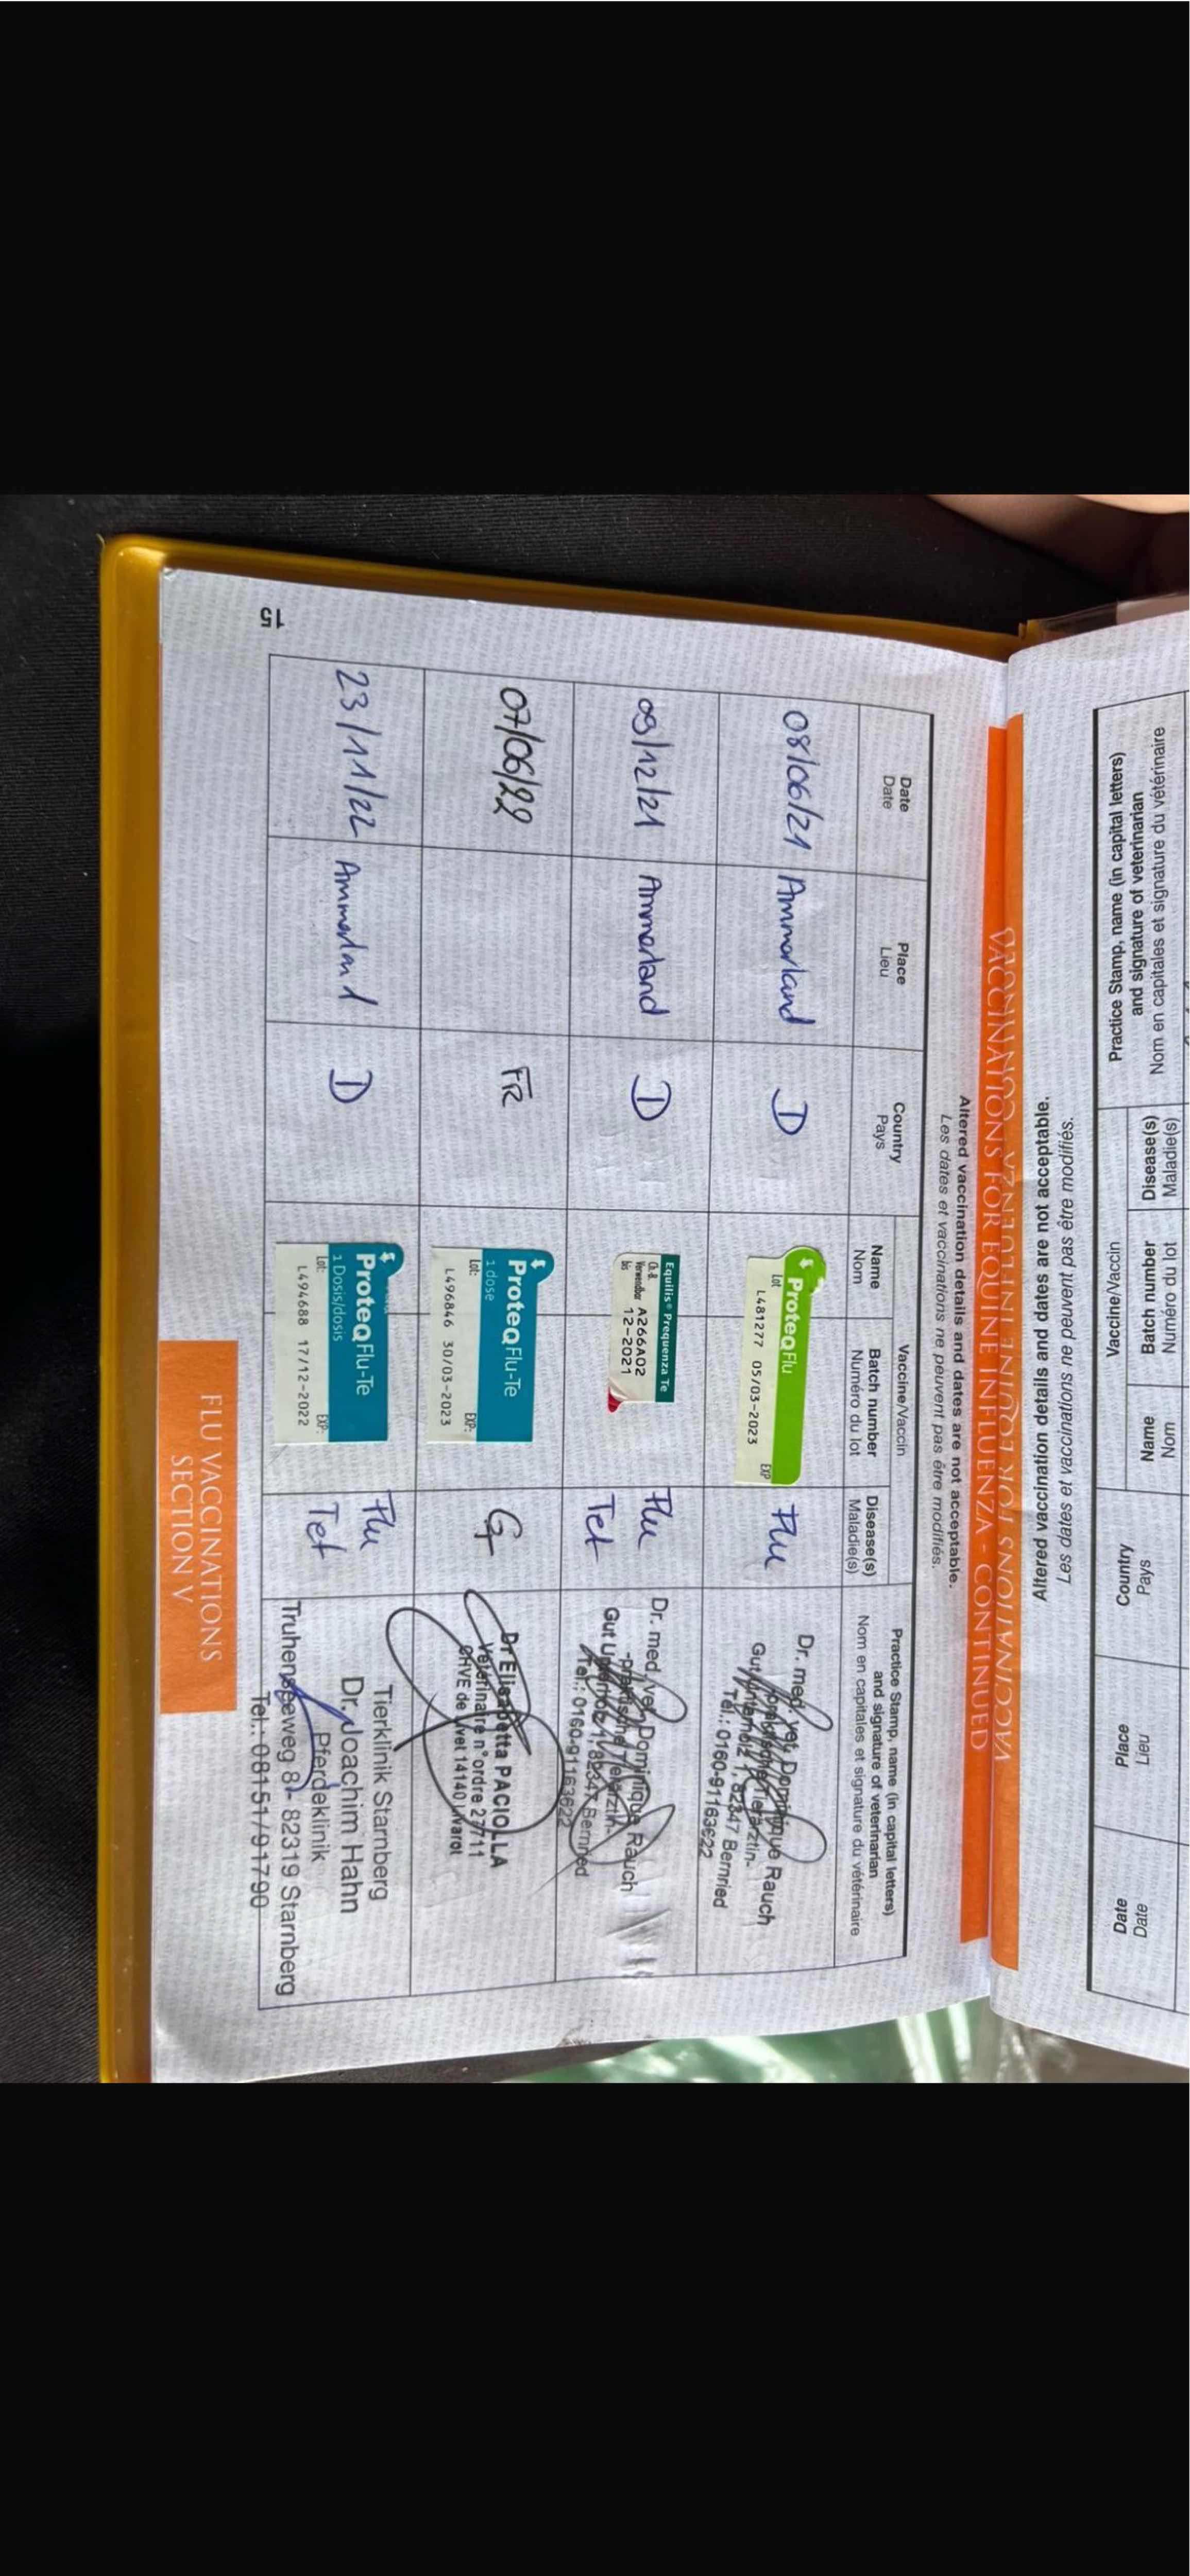 Practice Stamp, name (in capital letters)
and signature of veterinarian
Nom en capitales et signature du vétérinaire
Vaccine/Vaccin
Disease(s)
Maladie(s)
Batch number
Numéro du lot
Name
Nom
Country
Pays
Place
Lieu
Date
Date
Altered vaccination details and dates are not acceptable.
Les dates et vaccinations ne peuvent pas être modifiés.
VACCINATIONS FOR EQUINE INFLUENZA
VACCINATIONS FOR EQUINE INFLUENZA - CONTINUED
Altered vaccination details and dates are not acceptable.
Les dates et vaccinations ne peuvent pas être modifiés.
Date
Date
Place
Lieu
Country
Pays
Vaccine/Vaccin
Name
Nom
Batch number
Numéro du lot
Disease(s)
Maladie(s)
Practice Stamp, name (in capital letters)
and signature of veterinarian
Nom en capitales et signature du vétérinaire
08/06/21 Ammerland D
ProteqFlu
Lot EXP
L481277 05/03-2023
Flu
Dr. med. vet. Dominique Rauch
-praktische Tierärztin-
Gut Unterholz 1, 82347 Bernried
Tel.: 0160-91163622
09/12/21 Ammerland D
Equilis® Prequenza Te
Ch.-B. A266A02
Verwendbar bis 12-2021
Flu
Tet
Dr. med. vet. Dominique Rauch
-praktische Tierärztin-
Gut Unterholz 1, 82347 Bernried
Tel.: 0160-91163622
07/06/22 FR
ProteqFlu-Te
1 dose
Lot: EXP:
L496846 30/03-2023
GT
Dr Elisabetta PACIOLLA
Vétérinaire n°ordre 27711
CHVE de Livet 14140 Livarot
23/11/22 Ammerland D
ProteqFlu-Te
1 Dosis/dosis
Lot: EXP:
L494688 17/12-2022
Flu
Tet
Tierklinik Starnberg
Dr. Joachim Hahn
Pferdeklinik
Truhenseeweg 8 - 82319 Starnberg
Tel.: 08151/91790
FLU VACCINATIONS
SECTION V
15